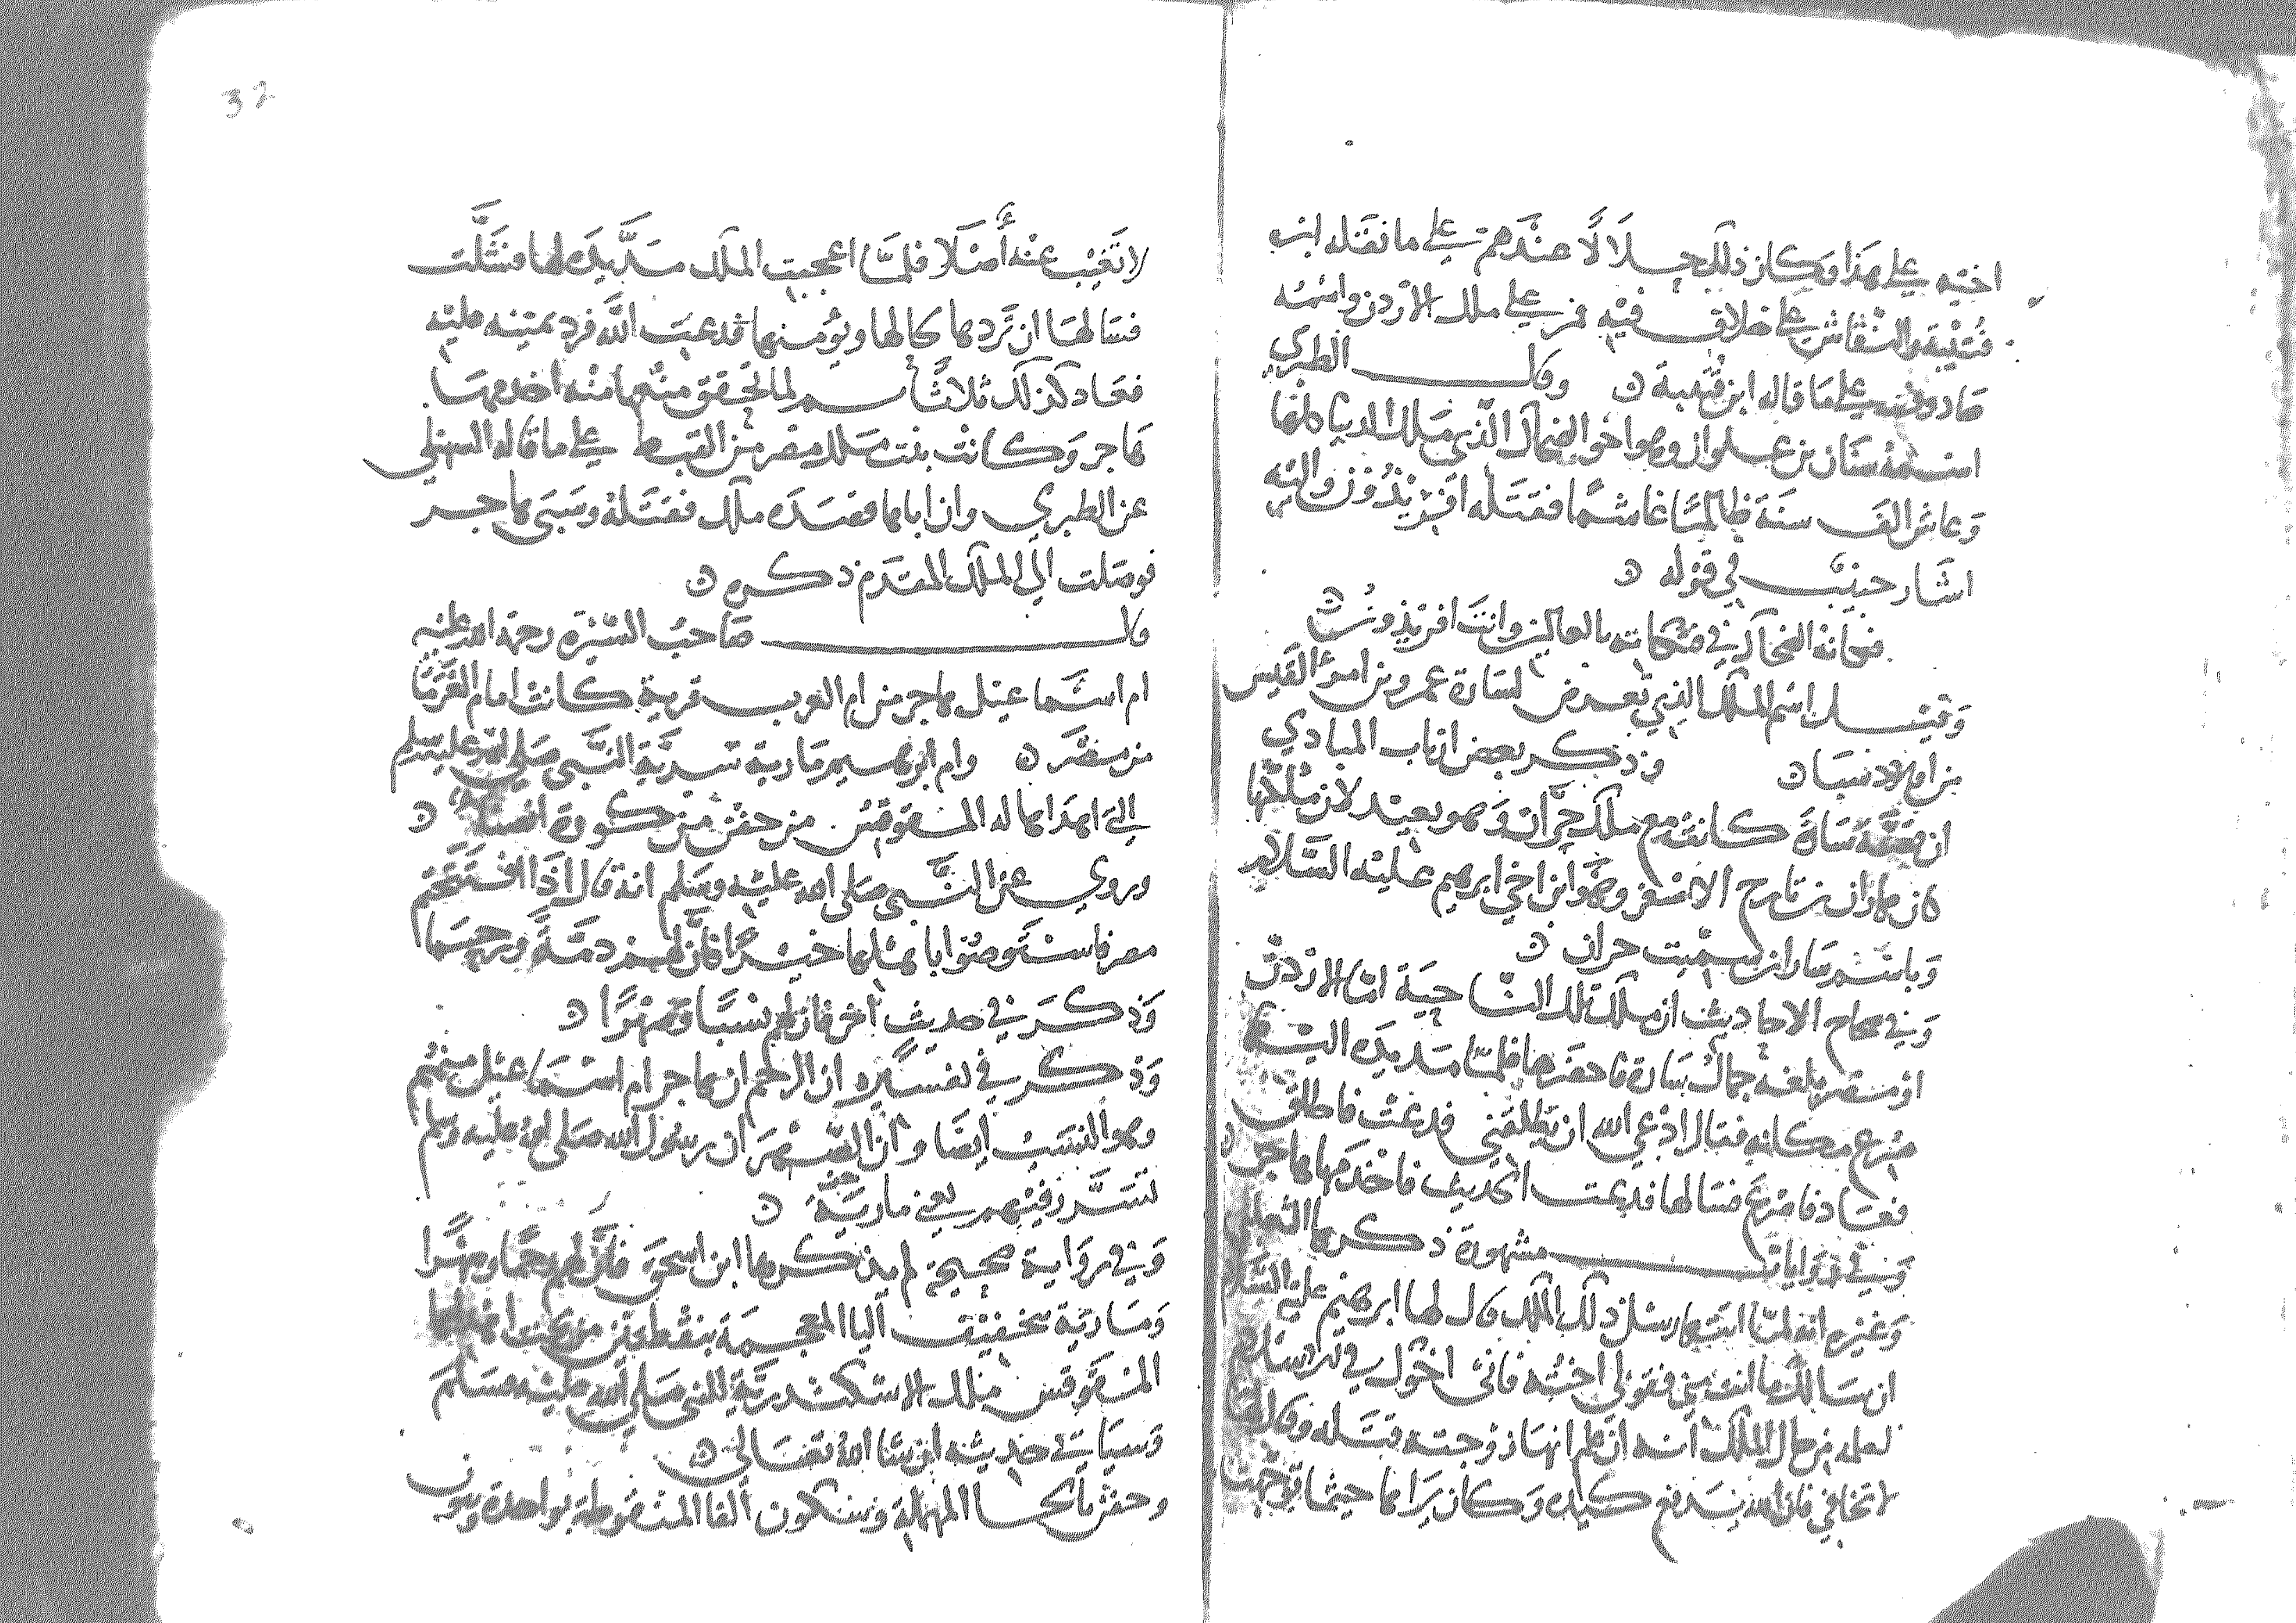 اخته على هذا وكان ذلك حلالا عندهم على ما نقله ابن
قتيبة والنقاش على خلاف فيه فمر على ملك الاردن واسمه
صادوف على ما قاله ابن قتيبة ه وقال الطبري
اسمه سنان بن علوان وهو اخو الضحاك الذي ملك الدنيا كلها
وعاش الف سنة ظالما غاشما فقتله افريذون واليه
اشار حبيب في قوله ه
فكانه الضحاك في فتكاته بالعالمين وانت افريذون ه
وقيل اسم الملك الذي تعرض لسارة عمرو بن امرؤ القيس
من اولاد سبا ه وذكر بعض ارباب المبادي
ان قصة سارة كانت مع ملك حران وهو بعيد لان ملكها
كان هاران بن تارح الاصغر وهو ابن اخي ابرهيم عليه السلام
وباسم هاران سميت حران ه
وفي صحاح الاحاديث ان ملك تلك الناحية اما الاردن
او مصر بلغه جمال سارة فاحضرها فلما مد يده اليها
صرع مكانه فقال ادعي الله ان يطلقني فدعت فاطلق
فعاد فصرع فسالها فدعت الحديث فاخدمها هاجر ه
وفي روايات مشهورة ذكرها الثعلبي
وغيره انه لما اتتها رسل ذلك الملك قال لها ابرهيم عليه السلام
ان سالك ما انت مني فقولي اخته فاني اخوك في الاسلام
لعلمه من حال الملك انه ان علم انها زوجته قتله وقال لها
لا تخافي فان الله يدفع كيده وكان يراها حيثما توجهت
لا تغيب عنه اصلا فلما اعجبت الملك مد يده لها فشلت
فسالها ان تردها كما لها ويؤمنها فدعت الله فرد يمينه عليه
فعاد كذلك ثلاثا ثم لما تحقق منها منه اخدمها
هاجر وكانت بنت ملك مصر من القبط على ما قاله السهيلي
عن الطبري وان اباها قصده ملك فقتله وسبى هاجر
فوصلت الى الملك المتقدم ذكره ه
قال صاحب السيرة رحمة الله عليه
ام اسماعيل هاجر من ام العرب قرية كانت امام الفرما
من مصر ه وام ابرهيم مارية سرية النبي صلى الله عليه وسلم
التي اهداها له المقوقس من حفن من كورة انصنا ه
وروي عن النبي صلى الله عليه وسلم انه قال اذا افتتحتم
مصر فاستوصوا باهلها خيرا فان لهم ذمة ورحما
وذكر في حديث آخر فان لهم نسبا وصهرا ه
وذكر في تفسيره ان الرحم ان هاجر ام اسماعيل منهم
وهو النسب ايضا وان الصهر ان رسول الله صلى الله عليه وسلم
تسرر فيهم يعني مارية ه
وفي رواية صحيحة لم يذكرها ابن اسحق فان لهم رحما وصهرا
ومارية بتخفيف اليا المعجمة بنقطتين من تحت اهداها
المقوقس ملك الاسكندرية للنبي صلى الله عليه وسلم
وسياتي حديثه ان شا الله تعالى ه
وحفن بالحا المهملة وسكون الفا المنقوطة بواحدة ونون